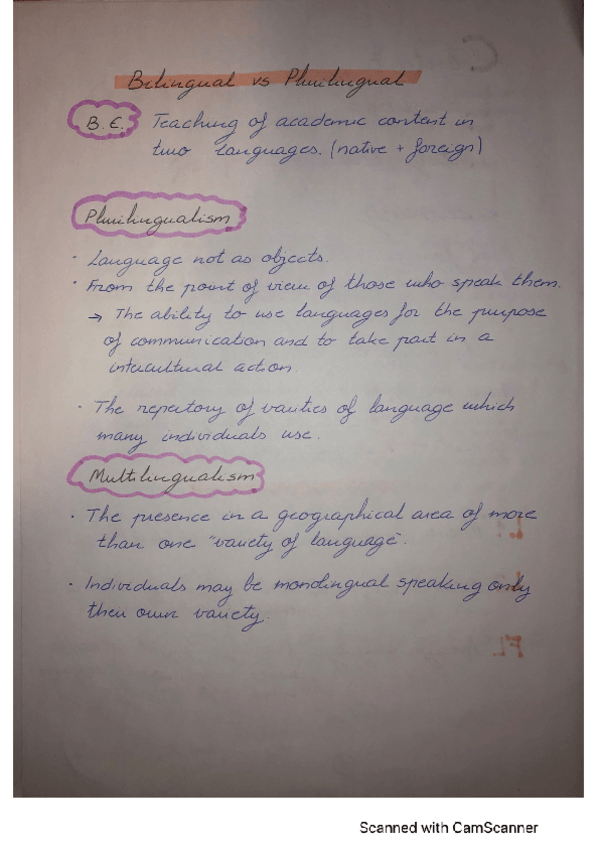 Bilingual vs Plurilingual
B.E. Teaching of academic content in
two languages. (native + foreign)
Plurilingualism
· Language not as objects.
· From the point of view of those who speak them.
→ The ability to use languages for the purpose
of communication and to take part in a
intercultural action.
· The repertory of varities of language which
many individuals use.
Multilingualism
· The presence in a geographical area of more
than one "variety of language".
· Individuals may be monolingual speaking only
their own variety.
FL
Scanned with CamScanner